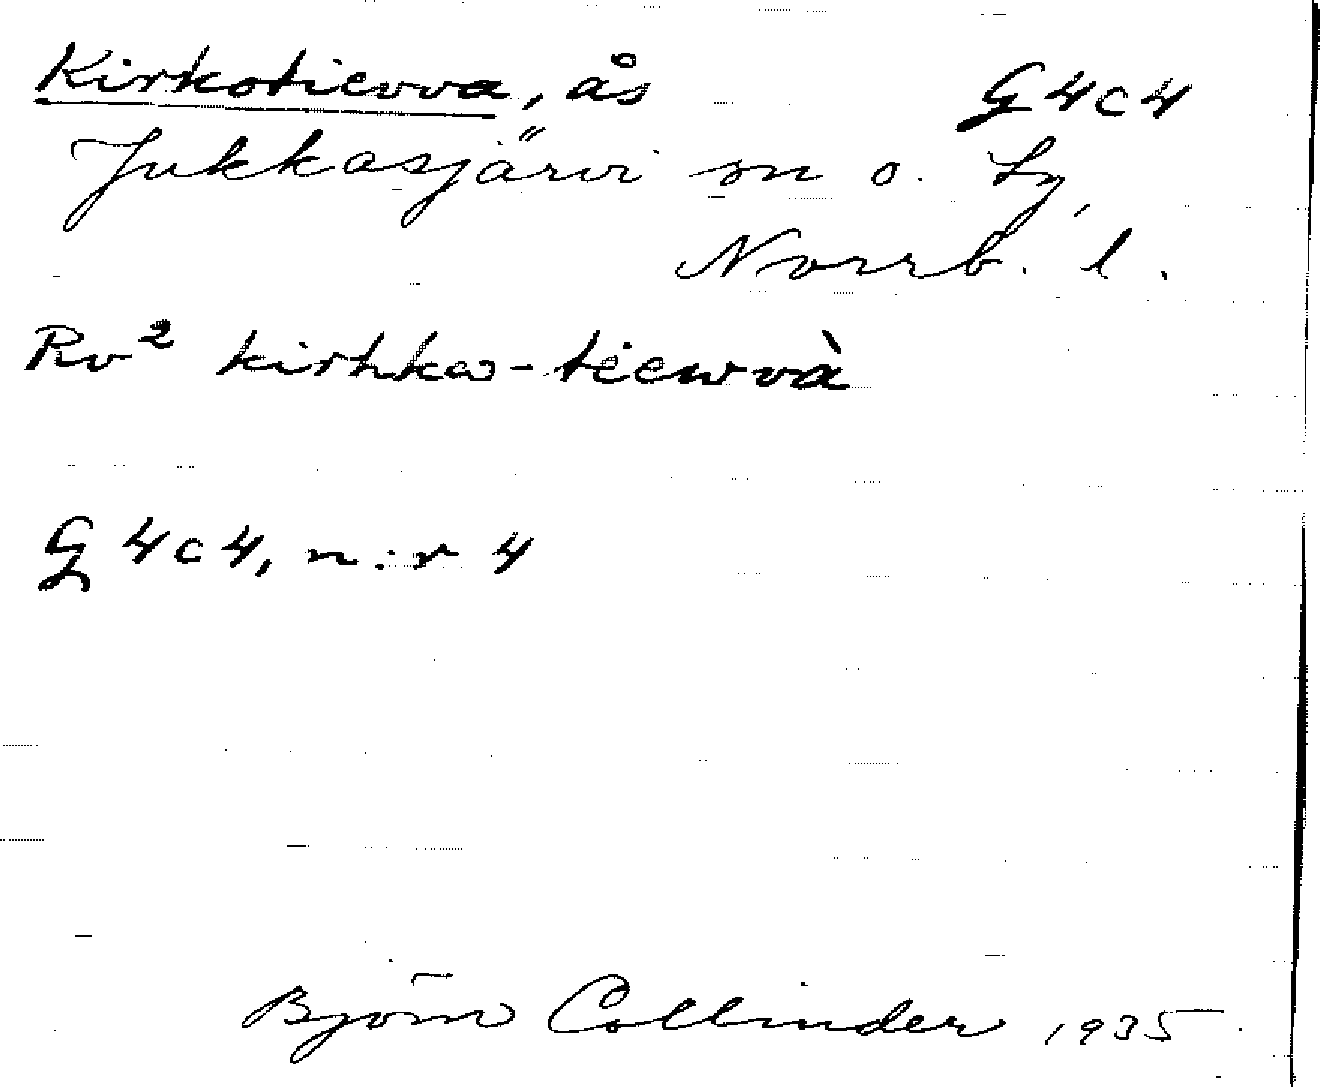 Kirkotievva, ås G4c4
Jukkasjärvi sn o. tg,
Norrb. l.
Rv² kirhkω-tievvà
G4c4, n:r 4
Björn Collinder 1935.